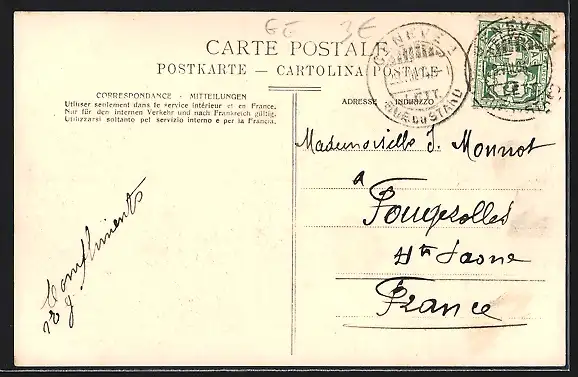 GE 3E
CARTE POSTALE
POSTKARTE — CARTOLINA POSTALE
CORRESPONDANCE - MITTEILUNGEN
Utiliser seulement dans le service intérieur et en France.
Nur für den internen Verkehr und nach Frankreich gültig.
Utilizzarsi soltanto pel servizio interno e per la Francia.
ADRESSE INDIRIZZO
GENÈVE 1
LETT.
RUE DU STAND
GENÈVE 1
Mademoiselle J. Monnot
à
Fougerolles
Hte Saone
France
Compliments